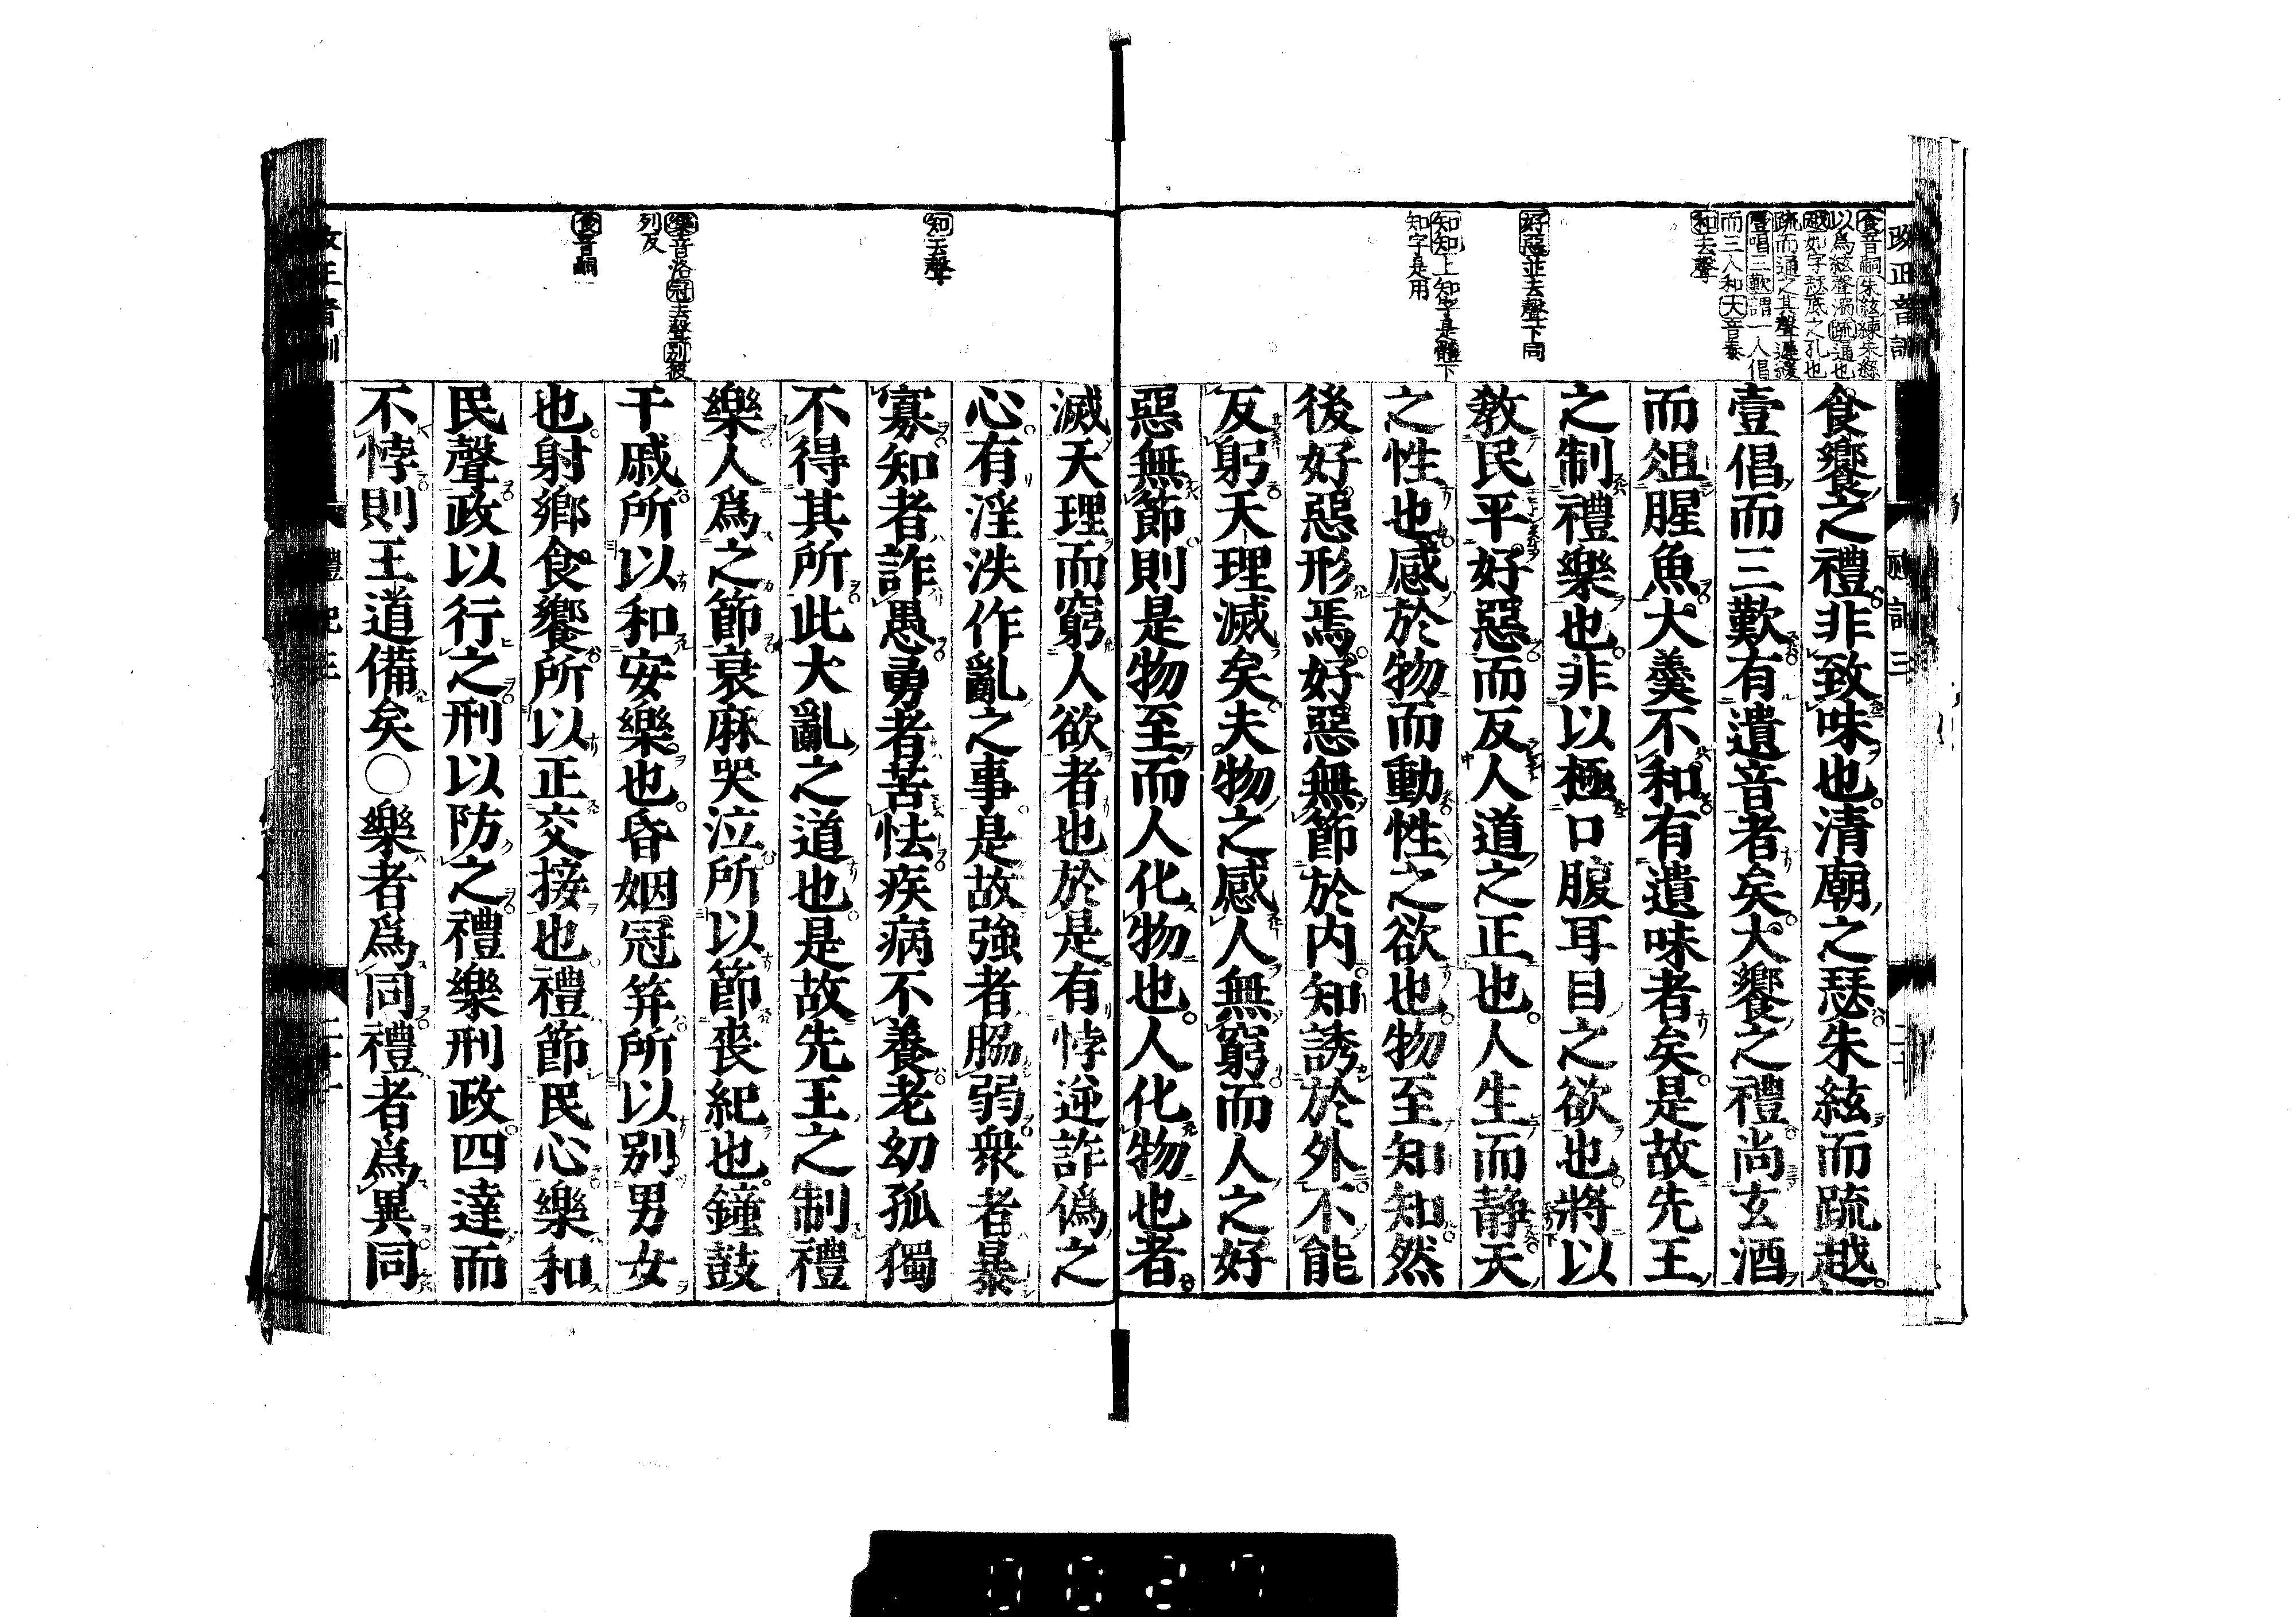 改正音訓
禮記三
食音嗣朱絃練朱絲
以爲絃聲濁疏通也
越如字瑟底之孔也
疏而通之其聲遲緩
壹唱三歎謂一人倡
而三人和大音泰
和去聲
好惡並去聲下同
知知上知字是體下
知字是用
食饗之禮非致味也清廟之瑟朱絃而疏越
壹倡而三歎有遺音者矣大饗之禮尚玄酒
而俎腥魚大羹不和有遺味者矣是故先王
之制禮樂也非以極口腹耳目之欲也將以
教民平好惡而反人道之正也人生而静天
之性也感於物而動性之欲也物至知知然
後好惡形焉好惡無節於内知誘於外不能
反躬天理滅矣夫物之感人無窮而人之好
惡無節則是物至而人化物也人化物也者
知去聲
樂音洛冠去聲別彼
列反
食音嗣
滅天理而窮人欲者也於是有悖逆詐僞之
心有淫泆作亂之事是故強者脇弱衆者暴
寡知者詐愚勇者苦怯疾病不養老幼孤獨
不得其所此大亂之道也是故先王之制禮
樂人爲之節衰麻哭泣所以節喪紀也鐘鼓
干戚所以和安樂也昏姻冠笄所以別男女
也射鄉食饗所以正交接也禮節民心樂和
民聲政以行之刑以防之禮樂刑政四達而
不悖則王道備矣○樂者爲同禮者爲異同
改正音訓
禮記三
0027